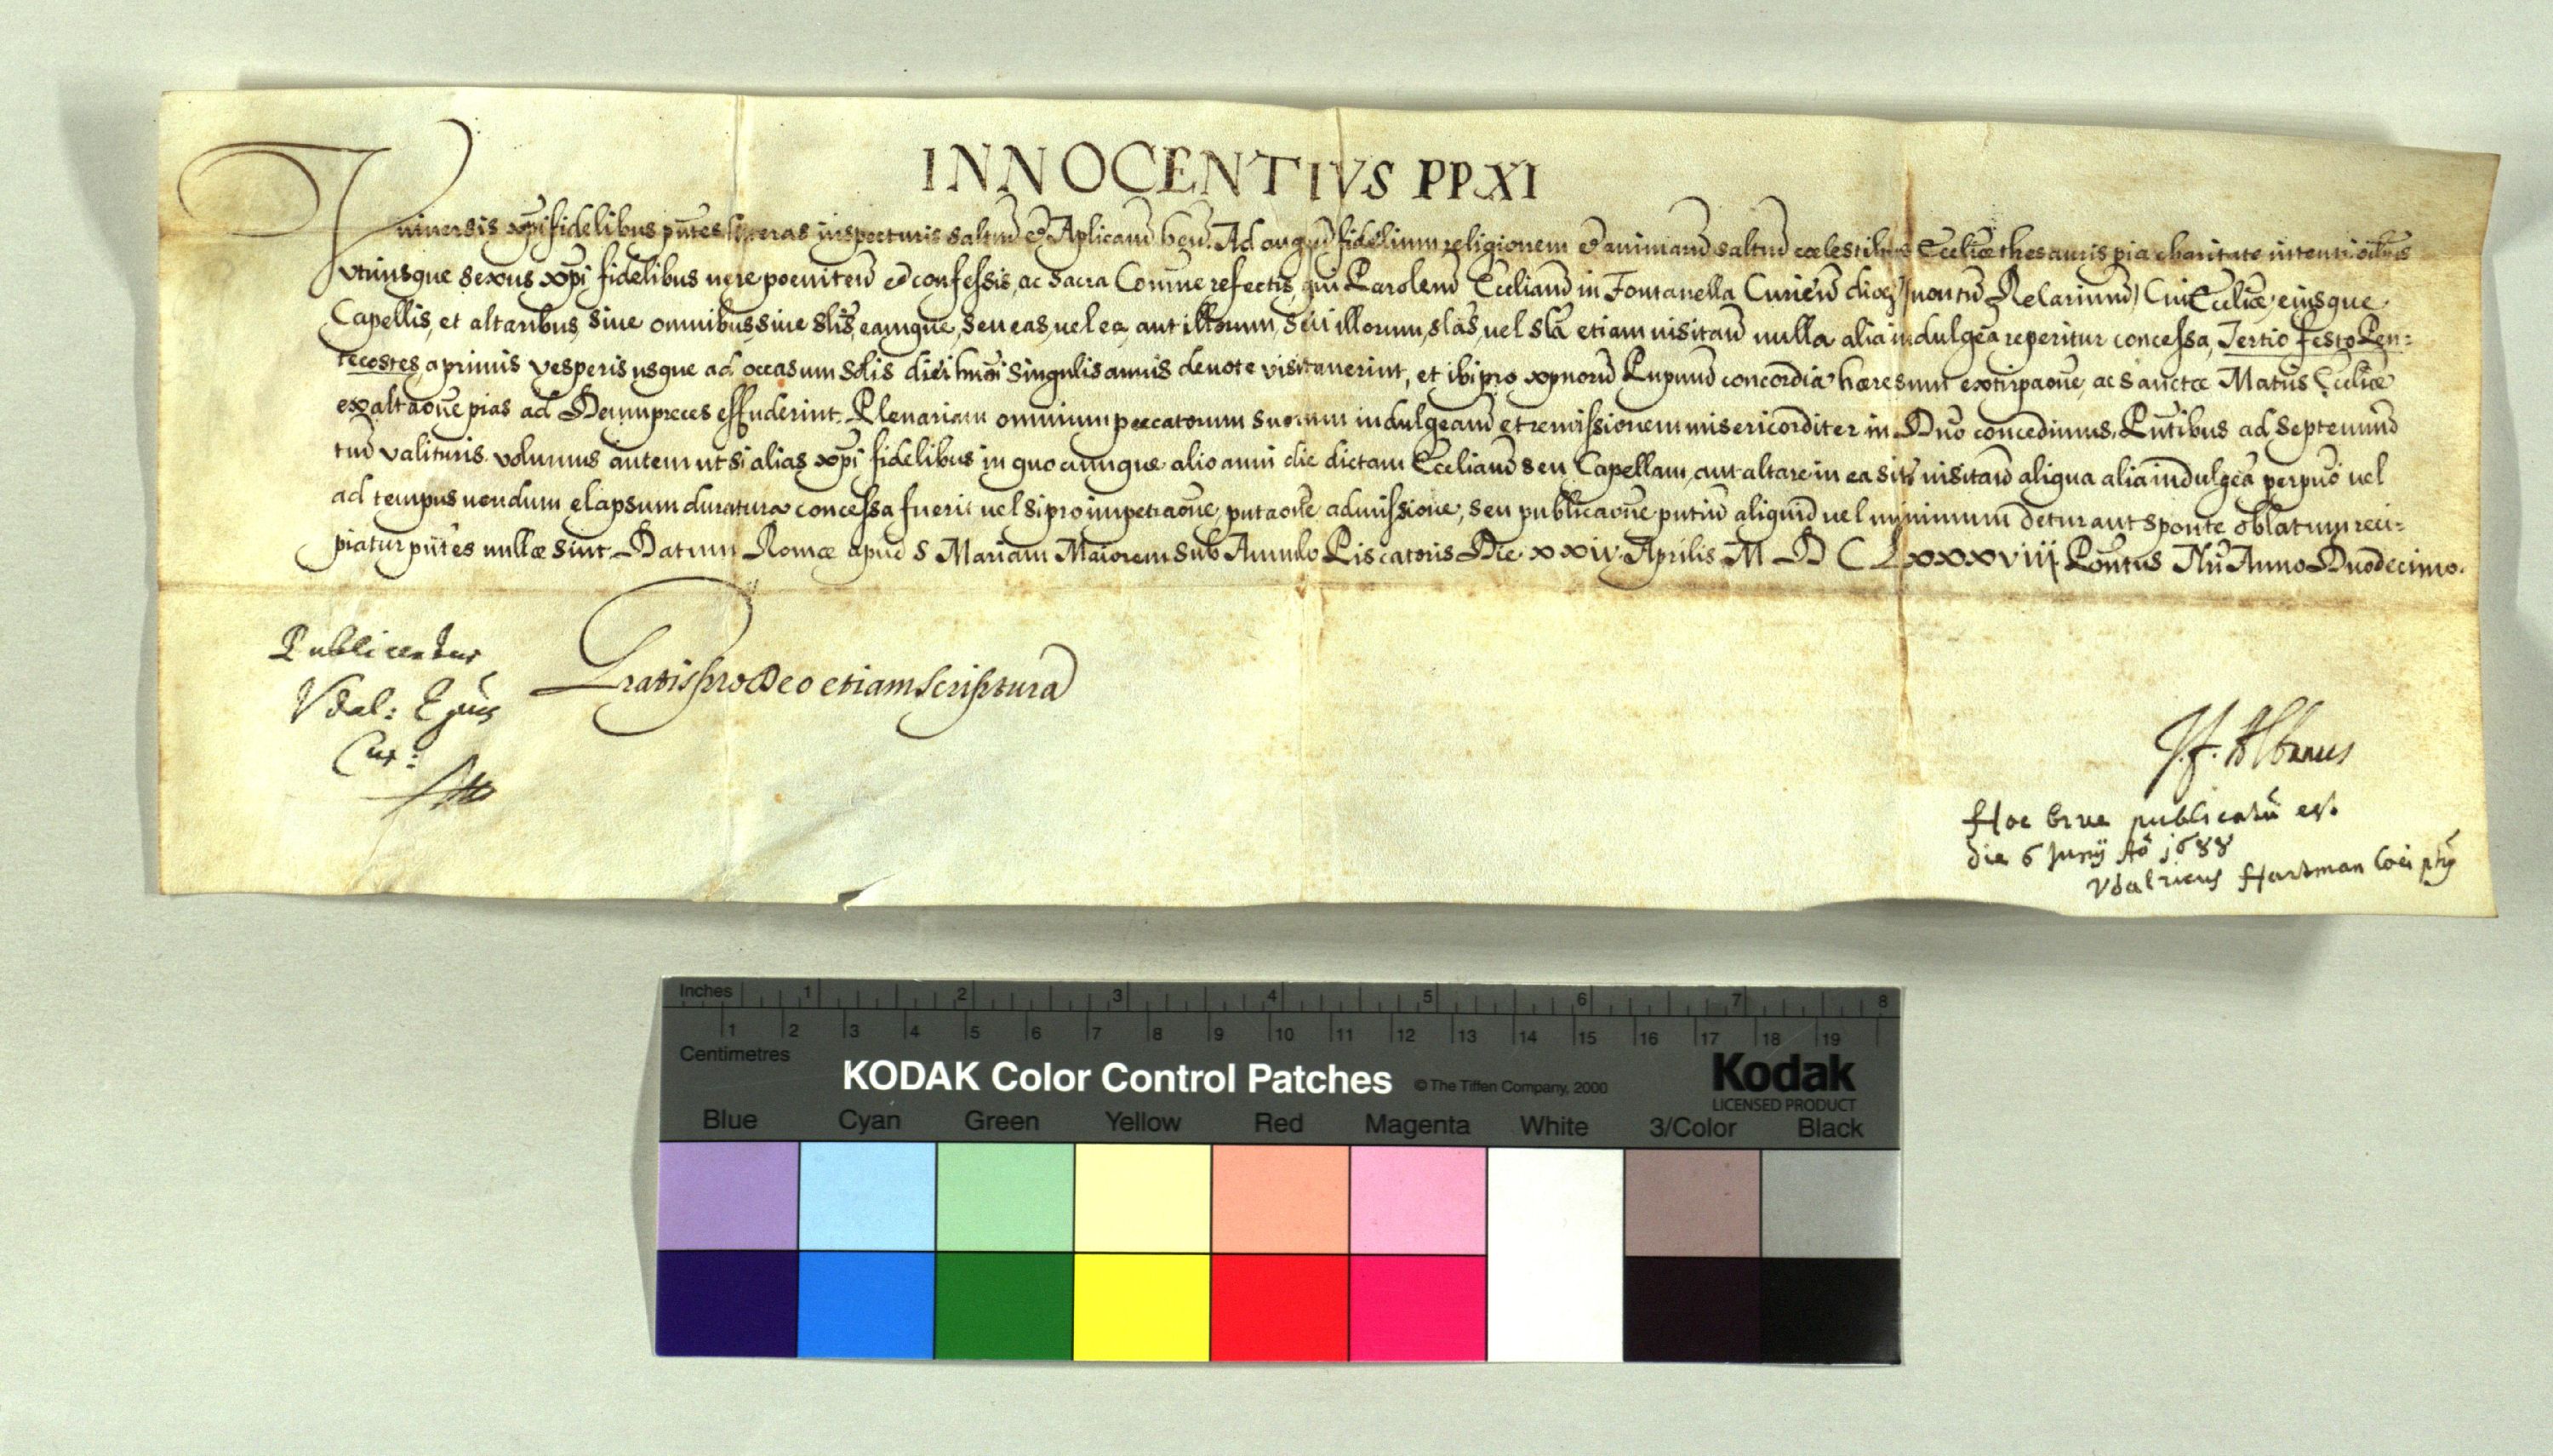 INNOCENTIVS PP. XI
Vniuersis xp̄ifidelibus pn̄tes literas inspecturis saltm̄ et Aplicam̄ ben̄. Ad augen̄ fidelium religionem et animarū saltm̄ coelestibus Ecclīae thesauris pia charitate intenti oībus
vtriusque sexus xp̄i fidelibus uere poeniten̄ et confessis, ac sacra Comn̄e refectis, qui Parolem̄ Eccliam̄ in Fontanella Curien̄ dioc̄ Cui Ecclīae, eiusque
Capellis, et altaribus, siue omnibus, siue slīs, eamque, seu eas, uel ea, aut illorum, seu illorum, slās, uel slā etiam uisitan̄ nulla alia indulgēa reperitur concessa, Tertio festo Pen=
tecostes, a primis vesperis usque ad occasum solis diei hm̄oi singulis annis deuote visitauerint, et ibi pro xp̄norū Pnpum̄ concordia haeresum extirpaōne, ac sanctae Matris Ecclīae
exaltaōne pias ad Deum preces effuderint. Plenariam omnium peccatorum suorum indulgeam̄ et remissionem misericorditer in Dn̄o concedimus. Pn̄tibus ad Septenniū
tm̄ valituris. volumus autem ut si alias xp̄i fidelibus in quocumque alio anni die dictam Eccliam̄ seu Capellam, aut altare in ea sit̄ uisitan̄ aliqua alia indulgēa perpuō uel
ad tempus nondum elapsum duratura concessa fuerit uel si pro impetraōne, pn̄taōne, admissione, seu publicaōne pn̄tiū aliquid uel minimum detur aut sponte oblatum reci=
piatur pn̄tes nullae sint. Datum Romae apud S Mariam Maiorem sub Annulo Piscatoris Die xxiv Aprilis M D C Lxxxviij. Pontūs Nrī Anno Duodecimo.
Publicentur
Vdal: Epūs
Cur:
Gratis pro Deo etiam scriptura
J. F. Albanus
Hoc breve publicatū est
die 6 Junij Aō 1688
Vdalricus Hartman
Inches 1 2 3 4 5 6 7 8
1 2 3 4 5 6 7 8 9 10 11 12 13 14 15 16 17 18 19
Centimetres
KODAK Color Control Patches © The Tiffen Company, 2000 Kodak
LICENSED PRODUCT
Blue Cyan Green Yellow Red Magenta White 3/Color Black